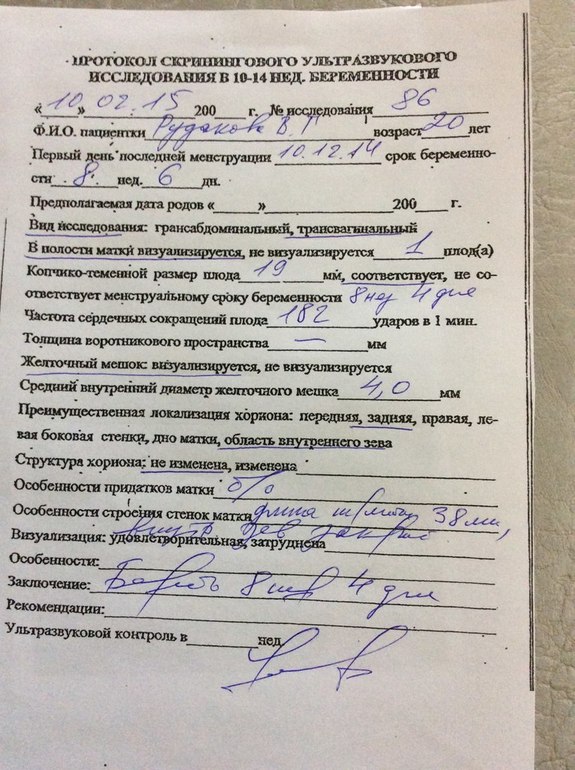 ПРОТОКОЛ СКРИНИНГОВОГО УЛЬТРАЗВУКОВОГО
ИССЛЕДОВАНИЯ В 10-14 НЕД. БЕРЕМЕННОСТИ
«10» 02.15 200 г. № исследования 86
Ф.И.О. пациентки Рудакова В.Г возраст 20 лет
Первый день последней менструации 10.12.14 срок беременно-
сти 8 нед. 6 дн.
Предполагаемая дата родов « » 200 г.
Вид исследования: трансабдоминальный, трансвагинальный
В полости матки визуализируется, не визуализируется 1 плод(а)
Копчико-теменной размер плода 19 мм, соответствует, не со-
ответствует менструальному сроку беременности 8 нед 4 дня
Частота сердечных сокращений плода 182 ударов в 1 мин.
Толщина воротникового пространства — мм
Желточный мешок: визуализируется, не визуализируется
Средний внутренний диаметр желточного мешка 4,0 мм
Преимущественная локализация хориона: передняя, задняя, правая, ле-
вая боковая стенки, дно матки, область внутреннего зева
Структура хориона: не изменена, изменена
Особенности придатков матки б/о
Особенности строения стенок матки длина ш/матки 38 мм,
внутр зев закрыт
Визуализация: удовлетворительная, затруднена
Особенности:
Заключение: Берть 8 нед 4 дня
Рекомендации:
Ультразвуковой контроль в нед